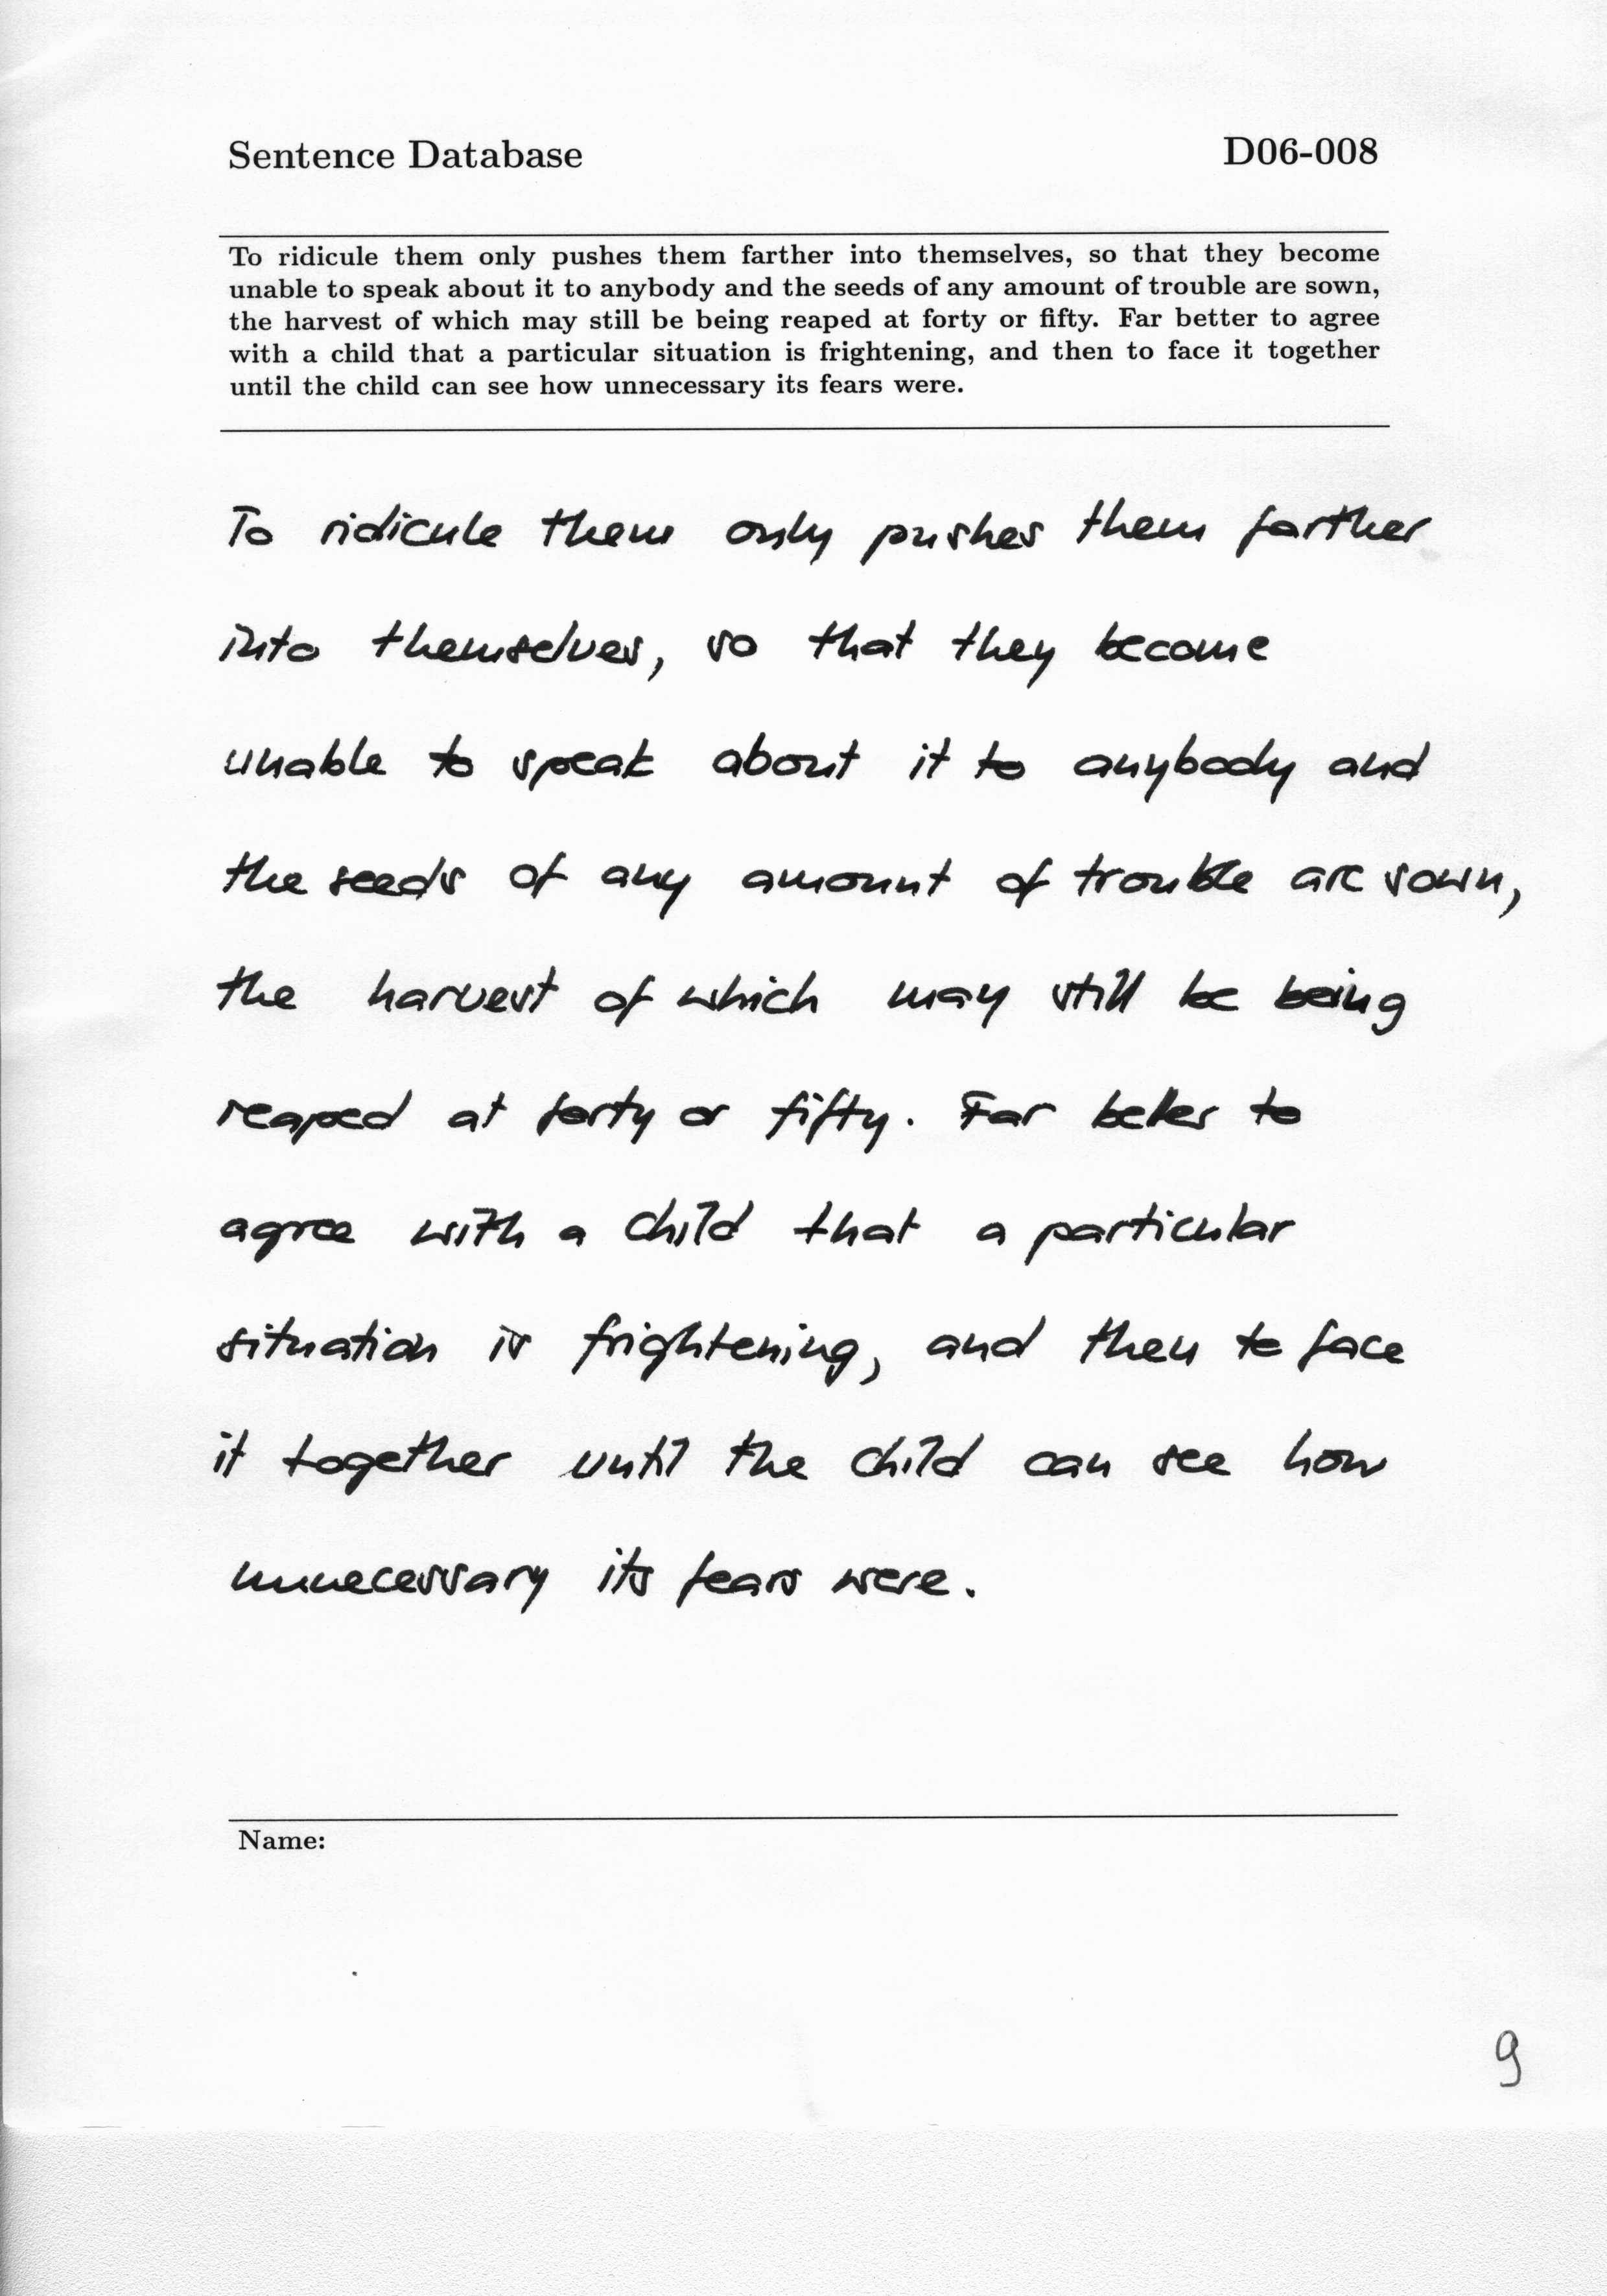 Sentence Database D06-008
To ridicule them only pushes them farther into themselves, so that they become
unable to speak about it to anybody and the seeds of any amount of trouble are sown,
the harvest of which may still be being reaped at forty or fifty. Far better to agree
with a child that a particular situation is frightening, and then to face it together
until the child can see how unnecessary its fears were.
To ridicule them only pushes them farther
into themselves, so that they become
unable to speak about it to anybody and
the seeds of any amount of trouble are sown,
the harvest of which may still be being
reaped at forty or fifty. Far better to
agree with a child that a particular
situation is frightening, and then to face
it together until the child can see how
unnecessary its fears were.
Name:
9